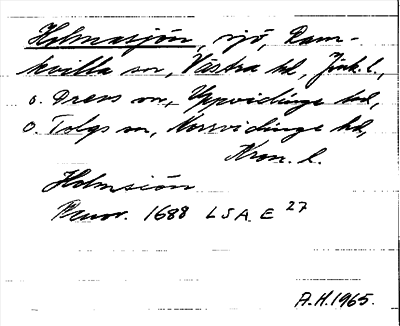 Holmasjön, sjö, Ram-
kvilla sn, Västra hd, Jönk. l.,
o. Drevs sn, Uppvidinge hd,
o. Tolgs sn, Norrvidinge hd,
Kron. l.
Holmsiön
Renov. 1688 LSA. E 27
A.H. 1965.